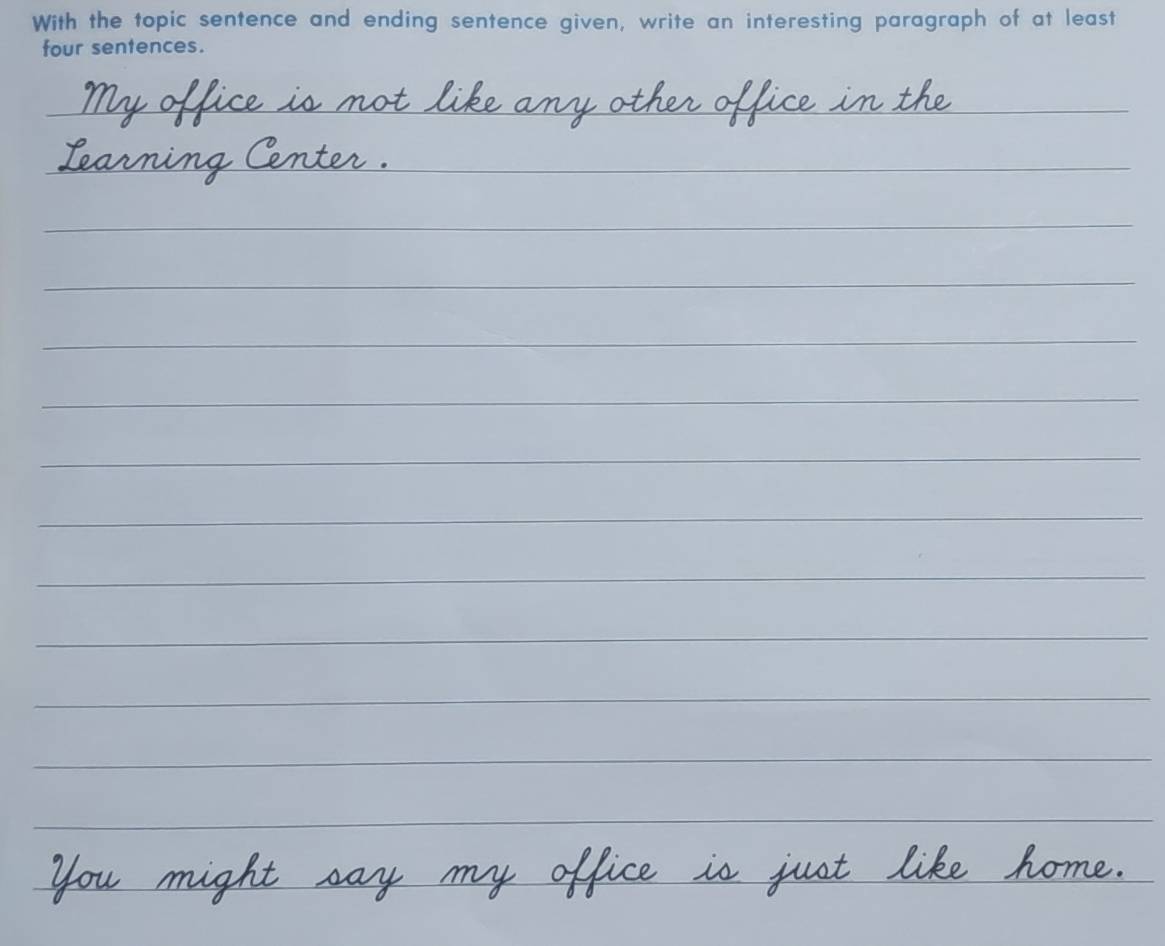 With the topic sentence and ending sentence given, write an interesting paragraph of at least
four sentences.
My office is not like any other office in the
Learning Center.
You might say my office is just like home.